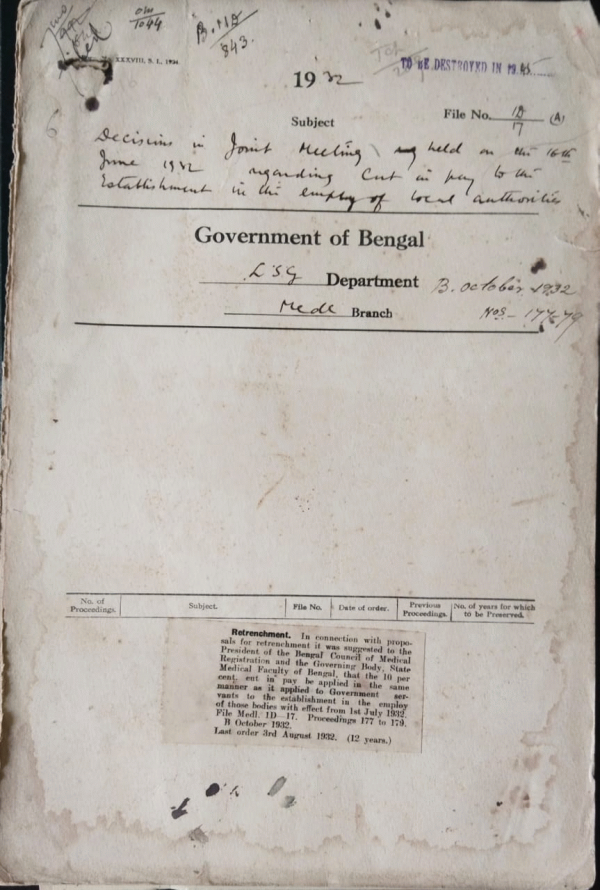 om
1044
B. No
843.
XXXVIII, S. L., 1934.
TO BE DESTROYED IN 1945
1932
File No. 1D/17 (A)
Subject
Decisions in Joint Meeting held on the 16th
June 1932 regarding Cut in pay to the
Establishment in the employ of local authorities
Government of Bengal
L.S.G Department B. October 1932
Medl Branch Nos - 177-79
No. of Proceedings. Subject. File No. Date of order. Previous Proceedings. No. of years for which to be Preserved.
Retrenchment. In connection with propo-
sals for retrenchment it was suggested to the
President of the Bengal Council of Medical
Registration and the Governing Body, State
Medical Faculty of Bengal, that the 10 per
cent. cut in pay be applied in the same
manner as it applied to Government ser-
vants to the establishment in the employ
of those bodies with effect from 1st July 1932.
File Medl. 1D—17. Proceedings 177 to 179.
B October 1932.
Last order 3rd August 1932. (12 years.)